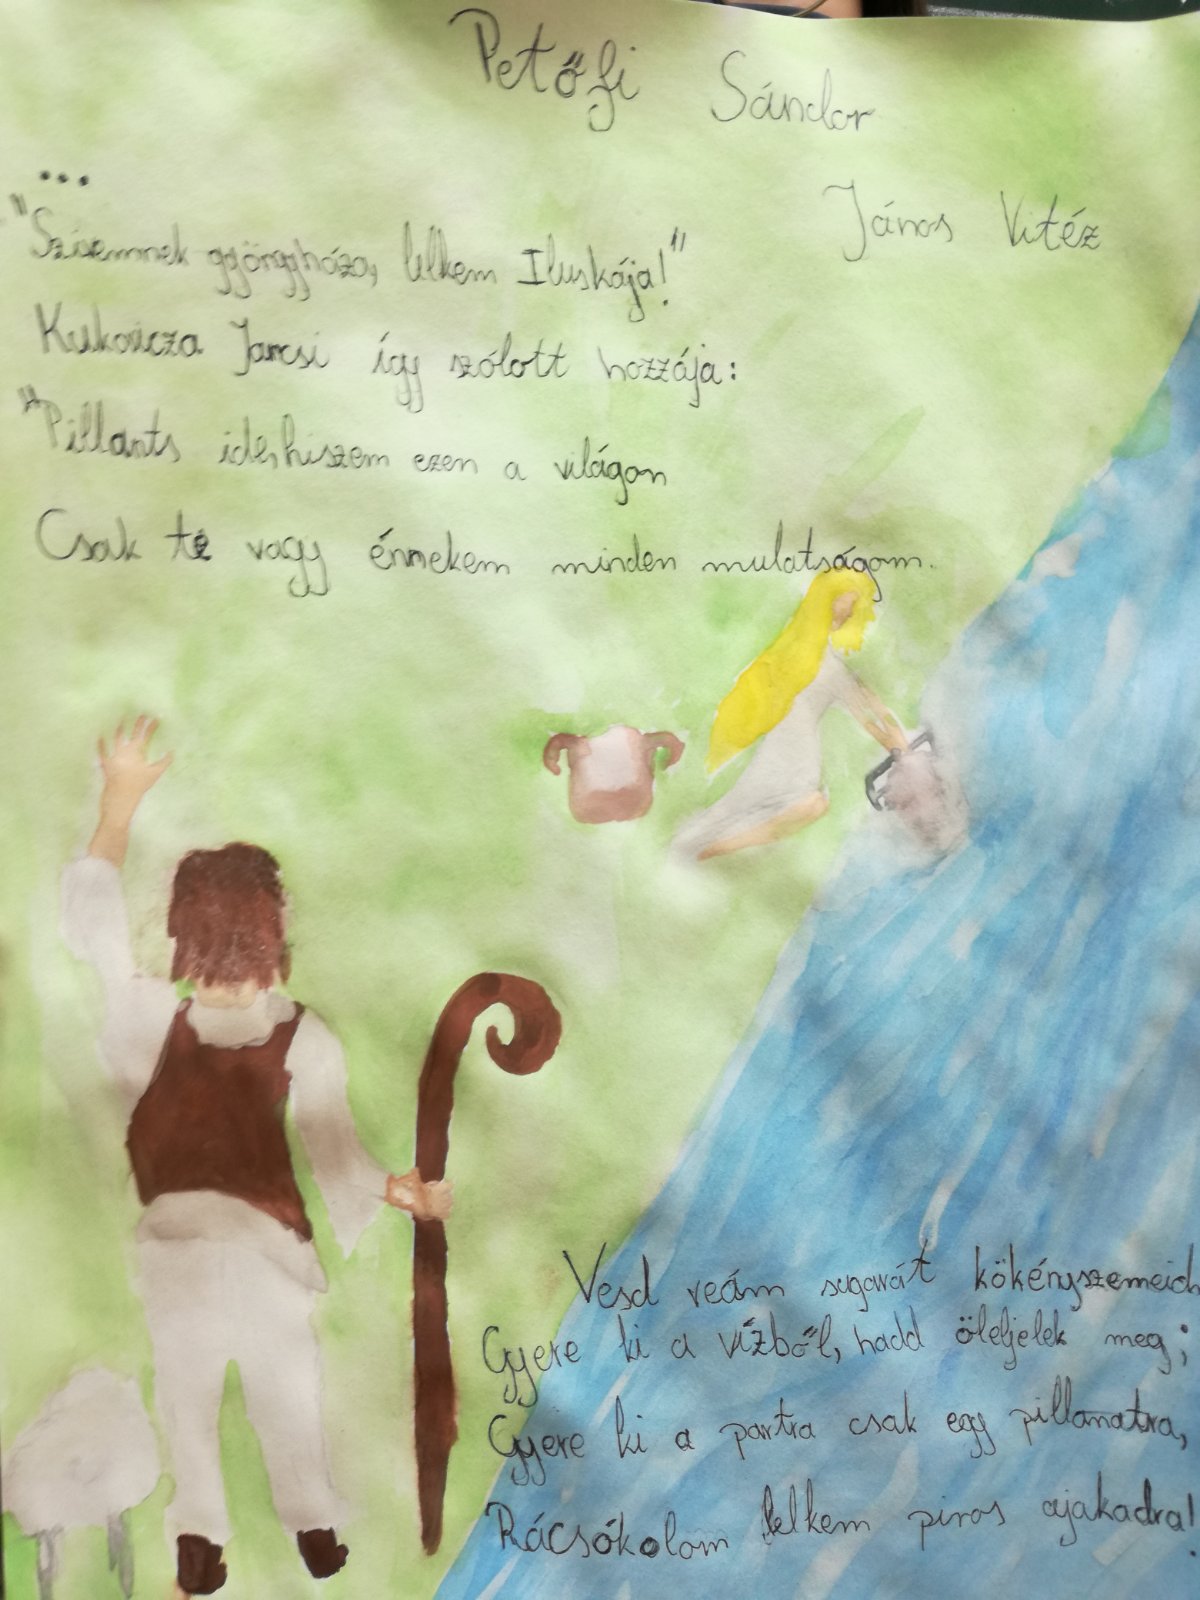 Petőfi Sándor
János Vitéz
...
"Szívemnek gyöngyháza, lelkem Iluskája!"
Kukoricza Jancsi így szólott hozzája:
"Pillants ide, hiszem ezen a világon
Csak te vagy énnekem minden mulatságom.
Vesd reám sugarát kökényszemeid
Gyere ki a vízből, hadd öleljelek meg;
Gyere ki a partra csak egy pillanatra,
Rácsókolom lelkem piros ajakadra!